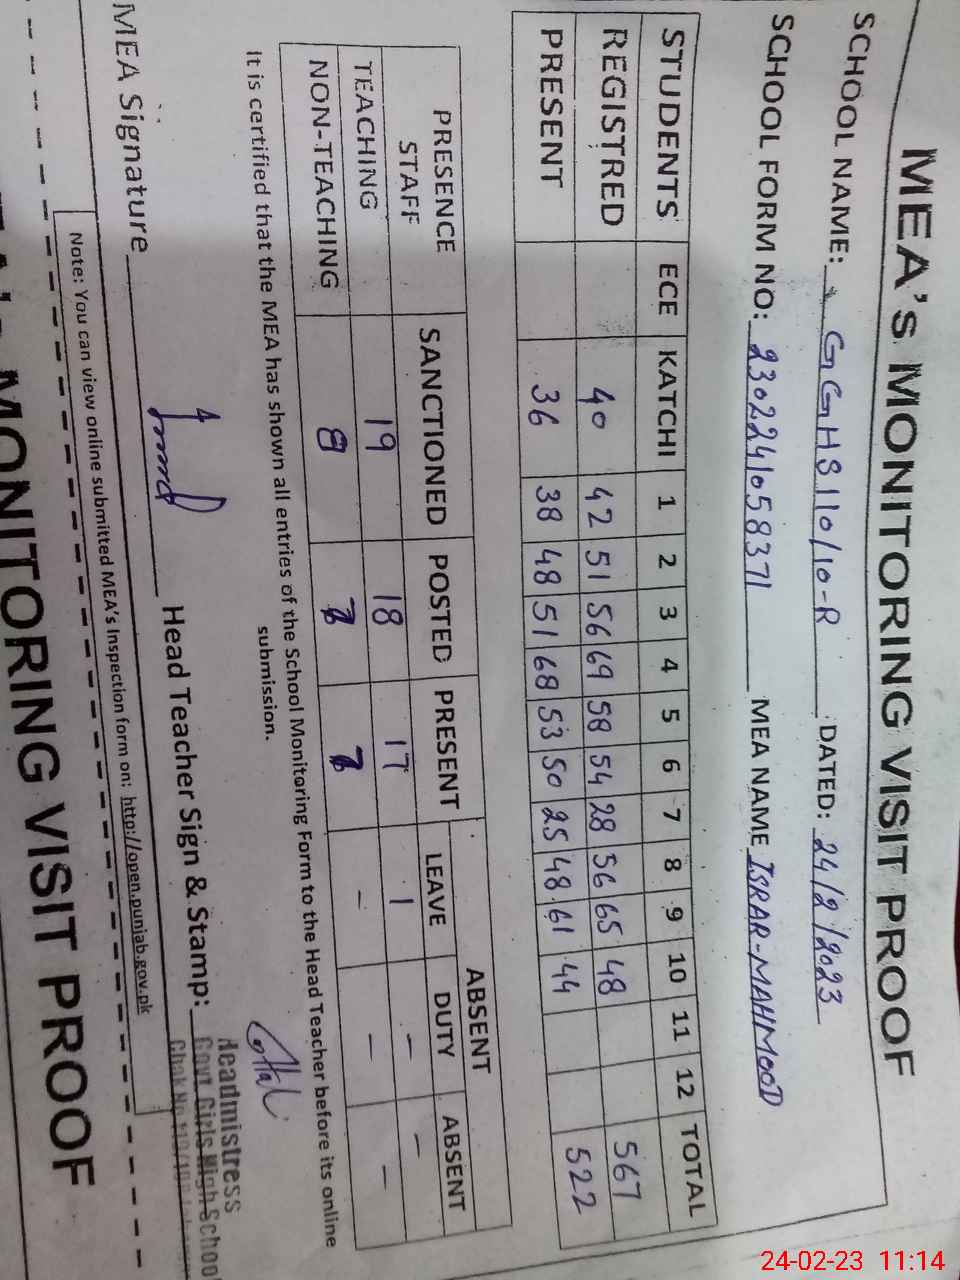 MEA's MONITORING VISIT PROOF
SCHOOL NAME: GGHS 110/10-R DATED: 24/2/2023
SCHOOL FORM NO: 2302241058371 MEA NAME ISRAR-MAHMOOD
STUDENTS ECE KATCHI 1 2 3 4 5 6 7 8 9 10 11 12 TOTAL
REGISTRED 40 42 51 56 69 58 54 28 56 65 48 567
PRESENT 36 38 48 51 68 53 50 25 48 61 44 522
PRESENCE STAFF SANCTIONED POSTED PRESENT ABSENT
LEAVE DUTY ABSENT
TEACHING 19 18 17 1 - -
NON-TEACHING 8 7 7 - - -
It is certified that the MEA has shown all entries of the School Monitoring Form to the Head Teacher before its online
submission.
MEA Signature Head Teacher Sign & Stamp:
Headmistress
Govt. Girls High School
Chak No.110/10R
Note: You can view online submitted MEA's Inspection form on: http://open.punjab.gov.pk
MONITORING VISIT PROOF
24-02-23 11:14